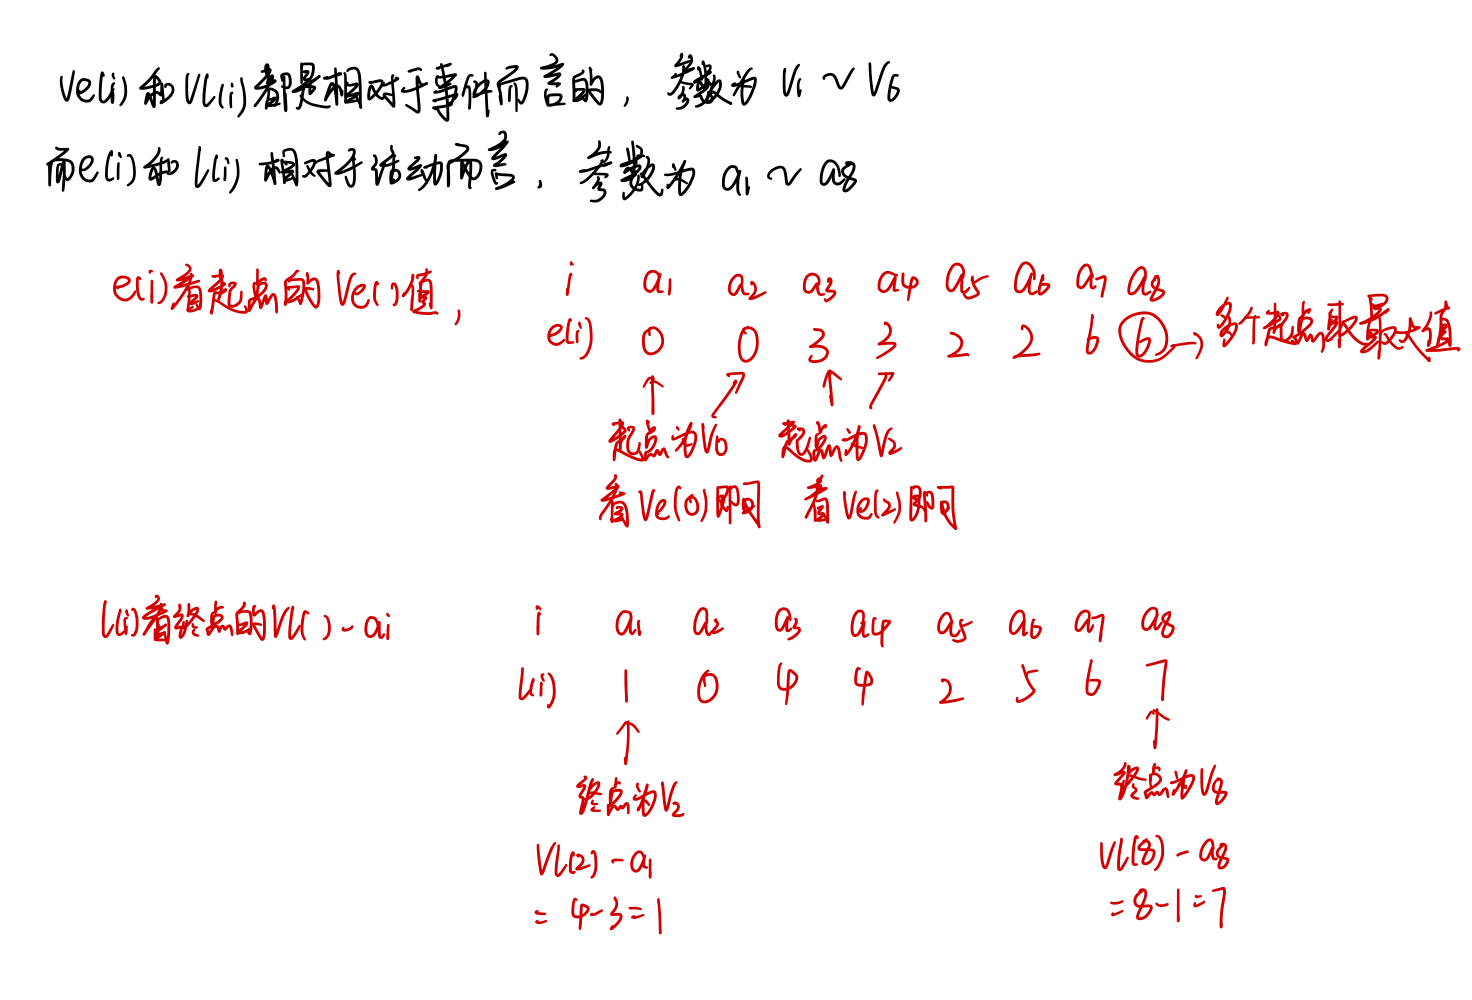 Ve(i)和Vl(i)都是相对于事件而言的，参数为V1～V6
而e(i)和l(i)相对于活动而言，参数为a1～a8
e(i)看起点的Ve( )值，
i a1 a2 a3 a4 a5 a6 a7 a8
e(i) 0 0 3 3 2 2 6 6 → 多个起点取最大值
起点为V0 起点为V2
看Ve(0)即可 看Ve(2)即可
l(i)看终点的Vl( )-ai
i a1 a2 a3 a4 a5 a6 a7 a8
l(i) 1 0 4 4 2 5 6 7
终点为V2 终点为V8
Vl(2)-a1 Vl(8)-a8
=4-3=1 =8-1=7